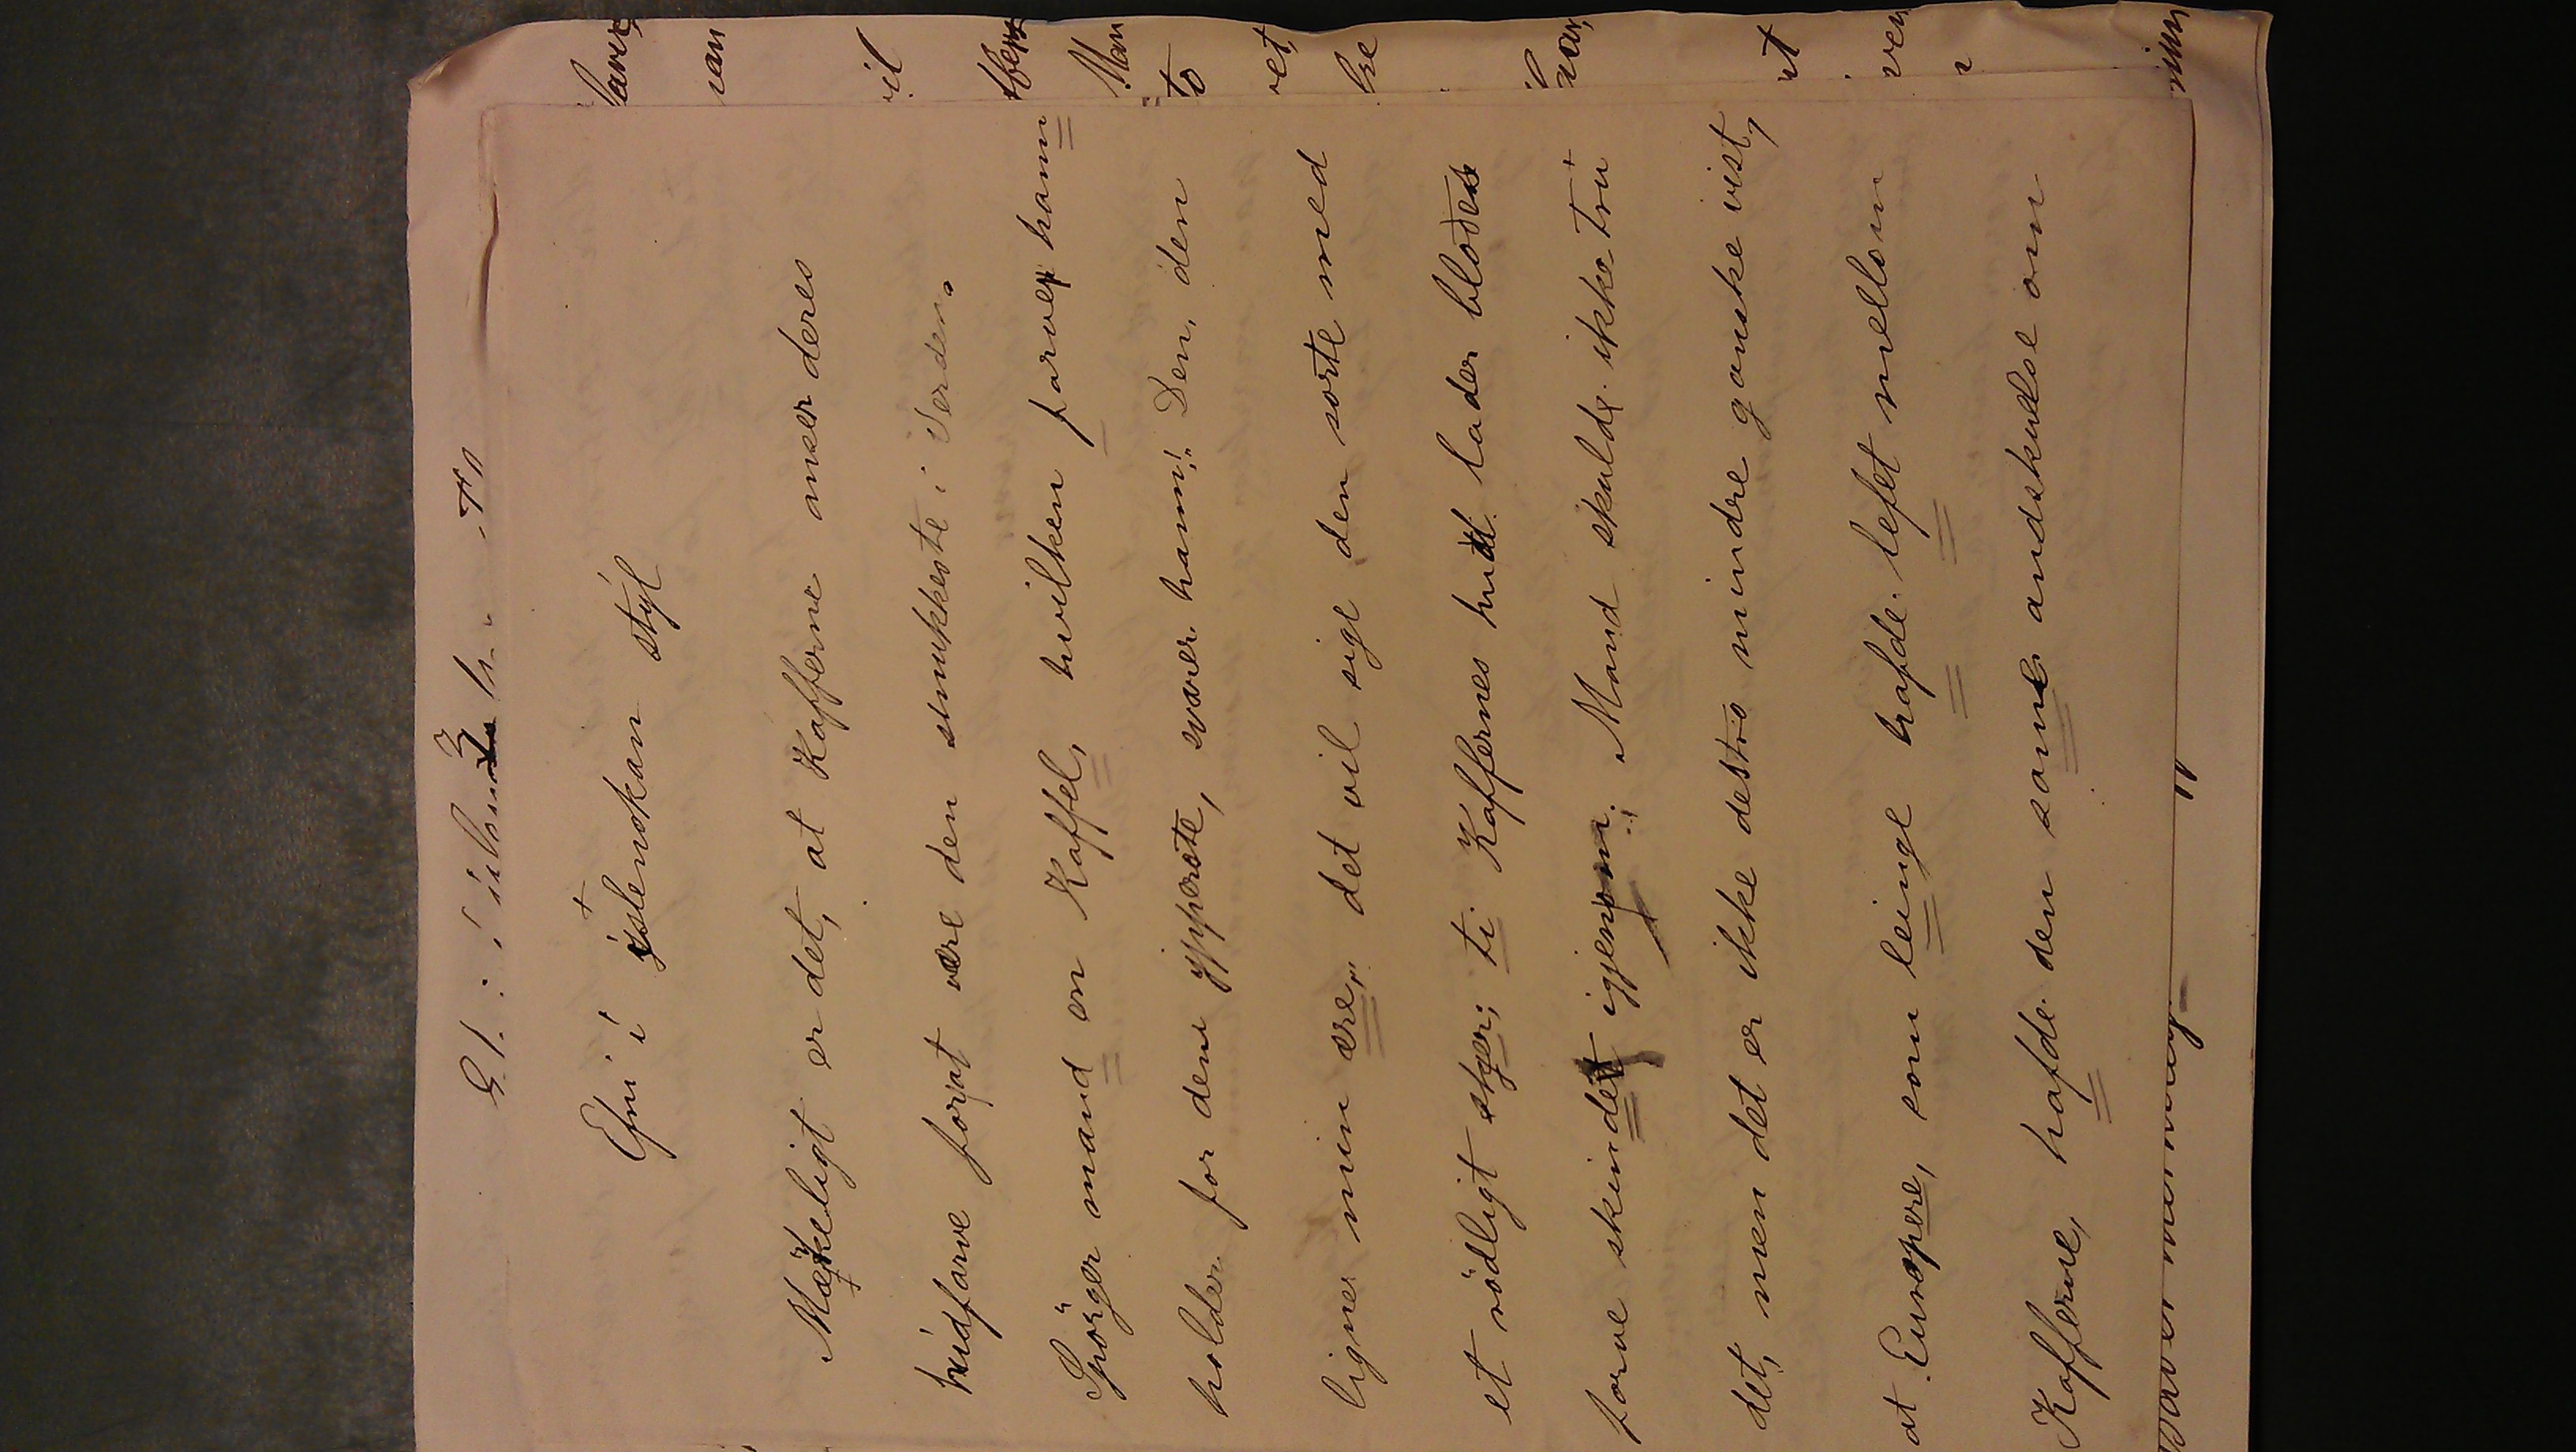 Efni í íslenskan stýl
Mærkeligt er det, at Kafferne anser deres
húdfarve forat være den smukkeste i Verden.
Spörger mand en Kaffel, hvilken farve hann
holder for den ypperste, svarer hann: Den, den
ligner min ere, det vil sige den sorte med
et rödligt skjer; ti Kaffernes hud lader blodets
farve skindet igjenem; Mand skulde ikke trú
det, men det er ikke destro mindre ganske vist,
at Europere, som leinge hafde lefet mellom
Kafferne, hafde den same andskuelse om